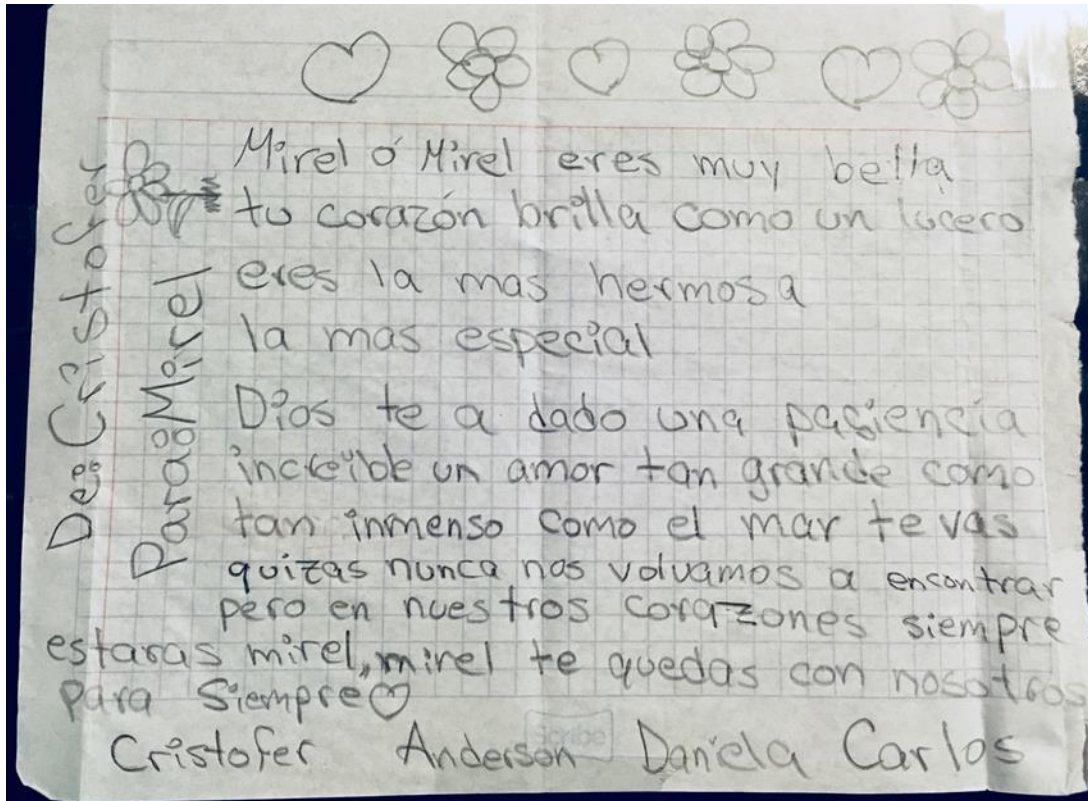 Mirel ó Mirel eres muy bella
tu corazón brilla como un lucero
eres la mas hermosa
la mas especial
Dios te a dado una pasiencia
increible un amor tan grande como
tan inmenso como el mar te vas
quizas nunca nos volvamos a encontrar
pero en nuestros corazones siempre
estaras mirel, mirel te quedas con nosotros
para siempre♡
Cristofer Anderson Daniela Carlos
De: Cristofer
Para: Mirel
Scribe